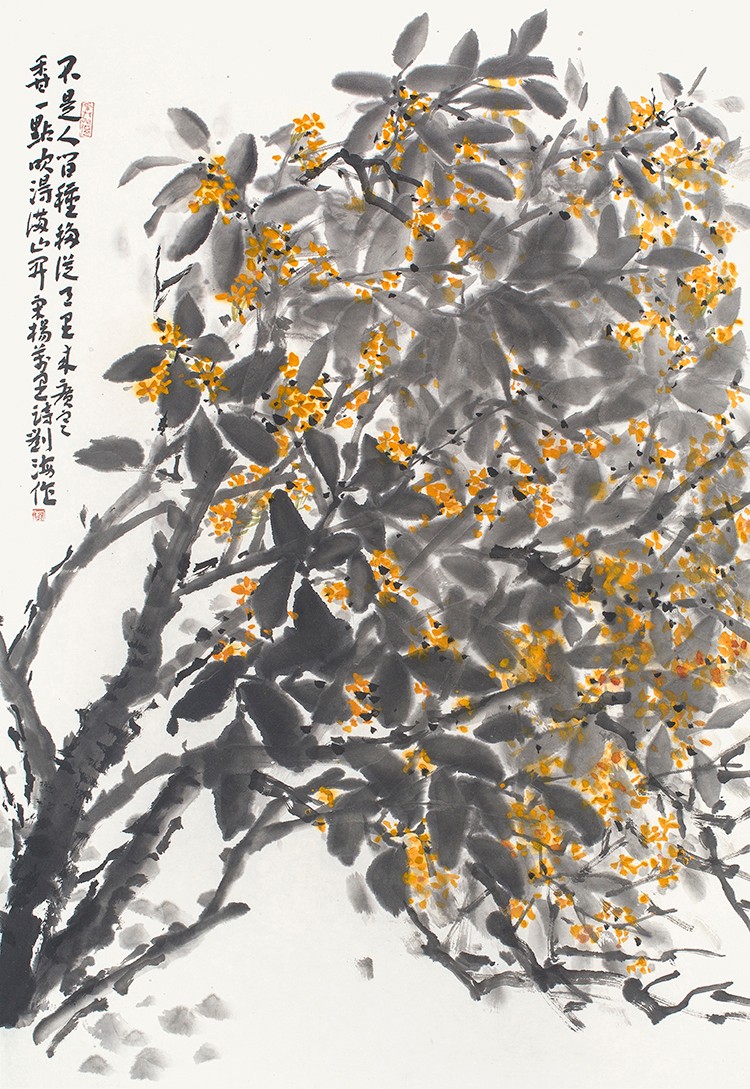 不是人间種移從月里来廣寒
香一點吹得滿山开宋楊萬里詩劉海作